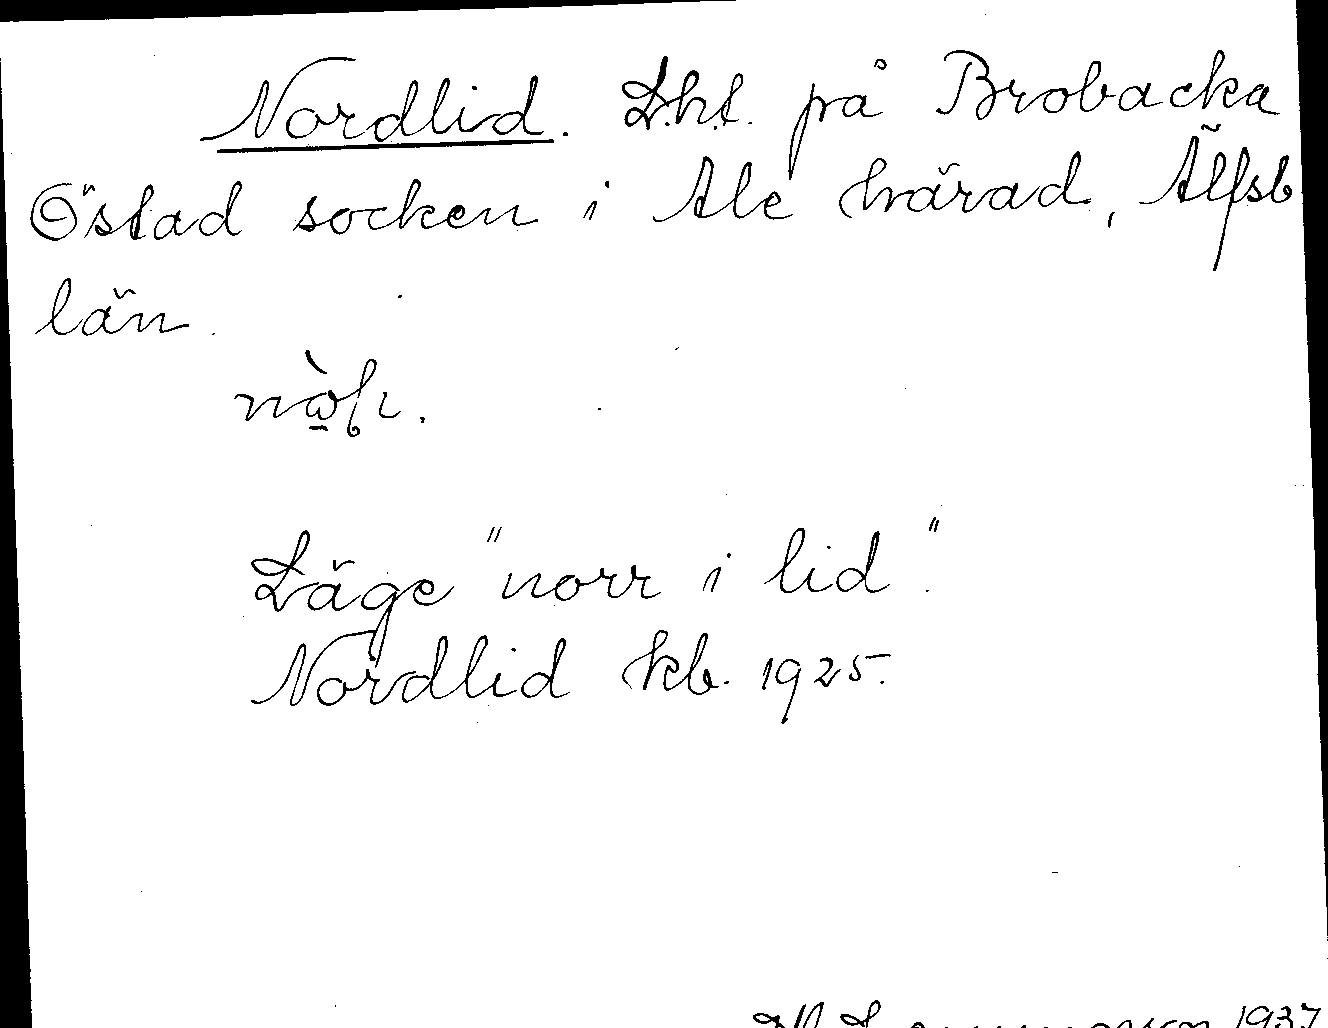 Nordlid. Lht. på Brobacka
Östad socken i Ale härad, Älfsb
län.
Läge "norr i lid".
Nordlid kb. 1925.
1937